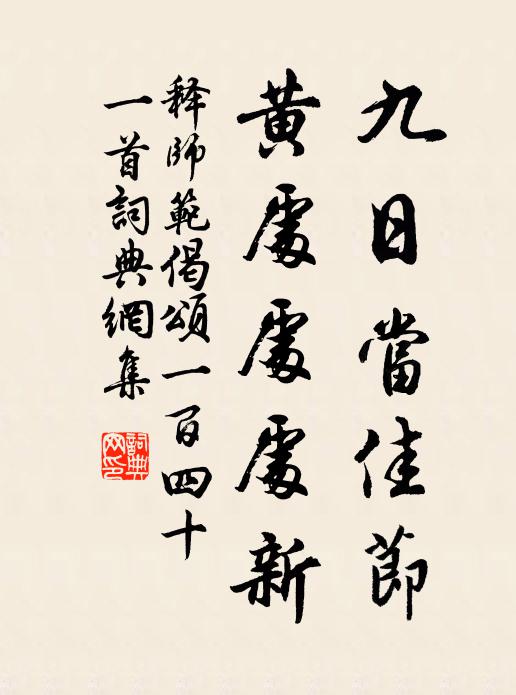 九日當佳節
黃處處處新
釋師範偈頌一百四十
一首詞典網集
詞典網印